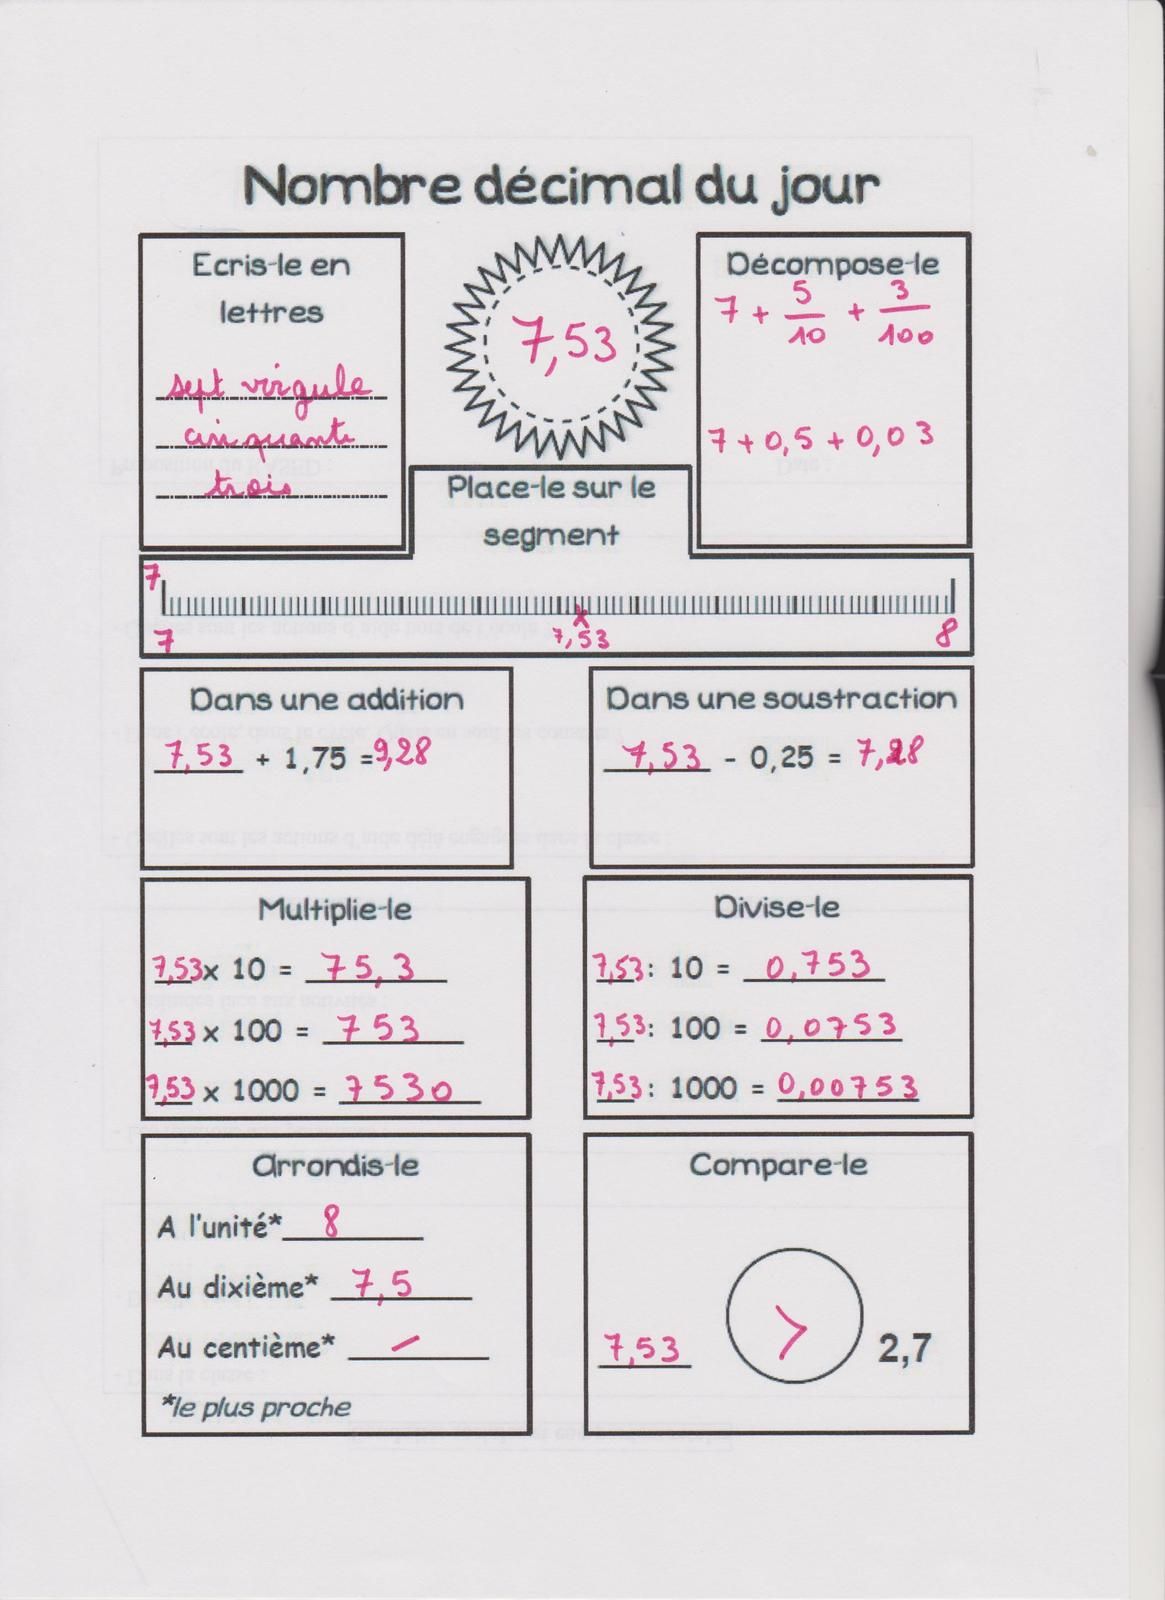 Nombre décimal du jour
Ecris-le en
lettres
sept virgule
cinquante
trois
7,53
Décompose-le
7 + 5/10 + 3/100
7 + 0,5 + 0,03
Place-le sur le
segment
7
7
7,53
8
Dans une addition
7,53 + 1,75 = 9,28
Dans une soustraction
7,53 - 0,25 = 7,28
Multiplie-le
7,53 x 10 = 75,3
7,53 x 100 = 753
7,53 x 1000 = 7530
Divise-le
7,53 : 10 = 0,753
7,53 : 100 = 0,0753
7,53 : 1000 = 0,00753
Arrondis-le
A l'unité* 8
Au dixième* 7,5
Au centième* —
*le plus proche
Compare-le
7,53 > 2,7